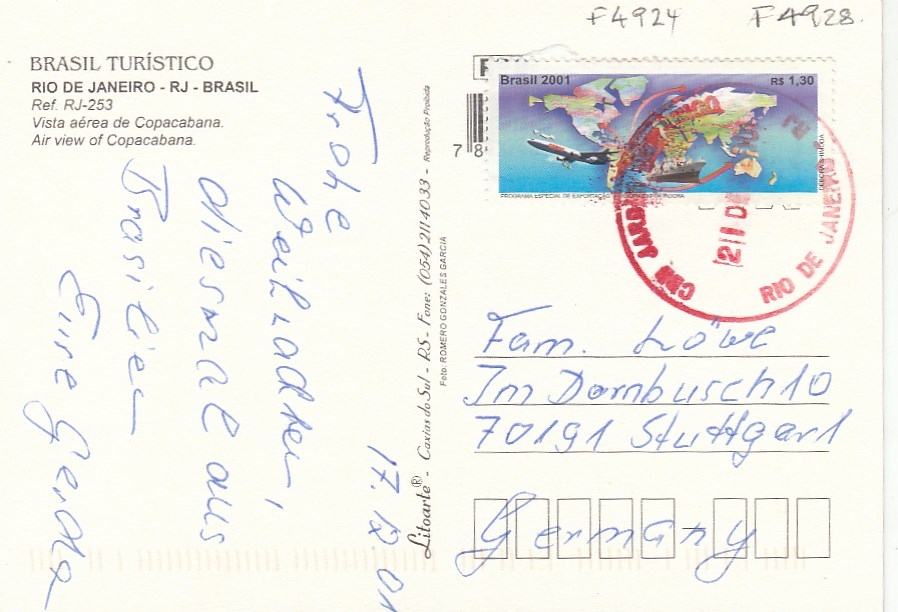 F4924 F4928
BRASIL TURÍSTICO
RIO DE JANEIRO - RJ - BRASIL
Ref. RJ-253
Vista aérea de Copacabana.
Air view of Copacabana.
17.12.01
Frohe
Weihnachten,
diesmal aus
Brasilien
Eure Gerda
Litoarte® - Caxias do Sul - RS - Fone: (054) 211 4033 - Reprodução Proibida
Foto: ROMERO GONZALES GARCIA
Brasil 2001
R$ 1,30
PROGRAMA ESPECIAL DE EXPORTAÇÃO
78
RIO DE JANEIRO - RJ
Fam. Löwe
Im Dornbusch 10
70191 Stuttgart
Germany